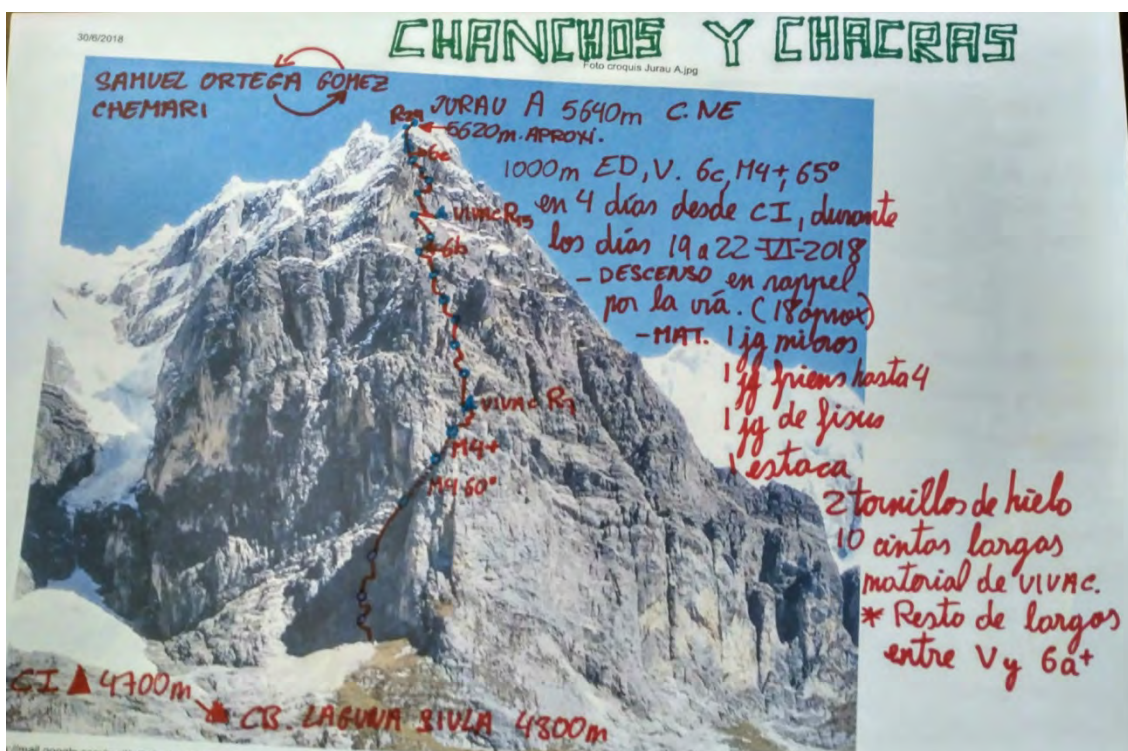 30/6/2018
CHANCHOS Y CHACRAS
Foto croquis Jurau A.jpg
SAMUEL ORTEGA GOMEZ
CHEMARI
JURAU A 5640m C. NE
5620m. APROXI.
6c
1000m ED, V. 6c, M4+, 65º
VIVAC R15
en 4 días desde CI, durante
los días 19 a 22-VI-2018
6b
- DESCENSO en rappel
por la vía. (18 aprox)
- MAT. 1 jg micros
1 jg friens hasta 4
VIVAC R7
1 jg de fisus
M4+
1 estaca
M4 60º
2 tornillos de hielo
10 cintas largas
material de VIVAC.
* Resto de largos
entre V y 6a+
CI 4700m
CB. LAGUNA SIULA 4300m